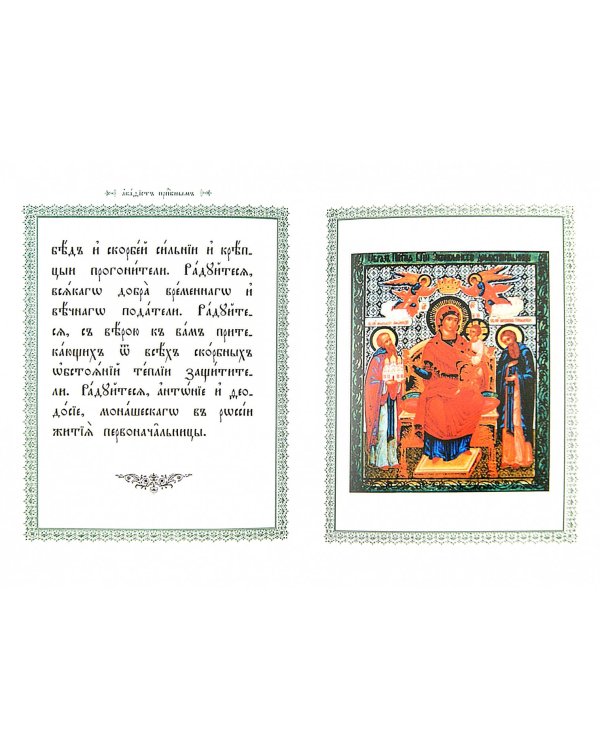 а҆ка́ѳїстъ прпⷣбнымъ
бѣ́дъ и҆ скорбе́й си́льнїи и҆ крѣ́п-
цыи прогони́тели. Ра́дꙋйтесѧ,
всѧ́кагѡ добра̀ вре́меннагѡ и҆
вѣ́чнагѡ пода́тели. Ра́дꙋйте-
сѧ, съ вѣ́рою къ ва́мъ прите-
ка́ющихъ ѿ всѣ́хъ ско́рбныхъ
ѡ҆бстоѧ́нїй те́плїи защи́тите-
ли. Ра́дꙋйтесѧ, а҆нтѡ́нїе и҆ ѳео-
до́сїе, мона́шескагѡ въ рѡссі́и
житїѧ̀ первонача́льницы.